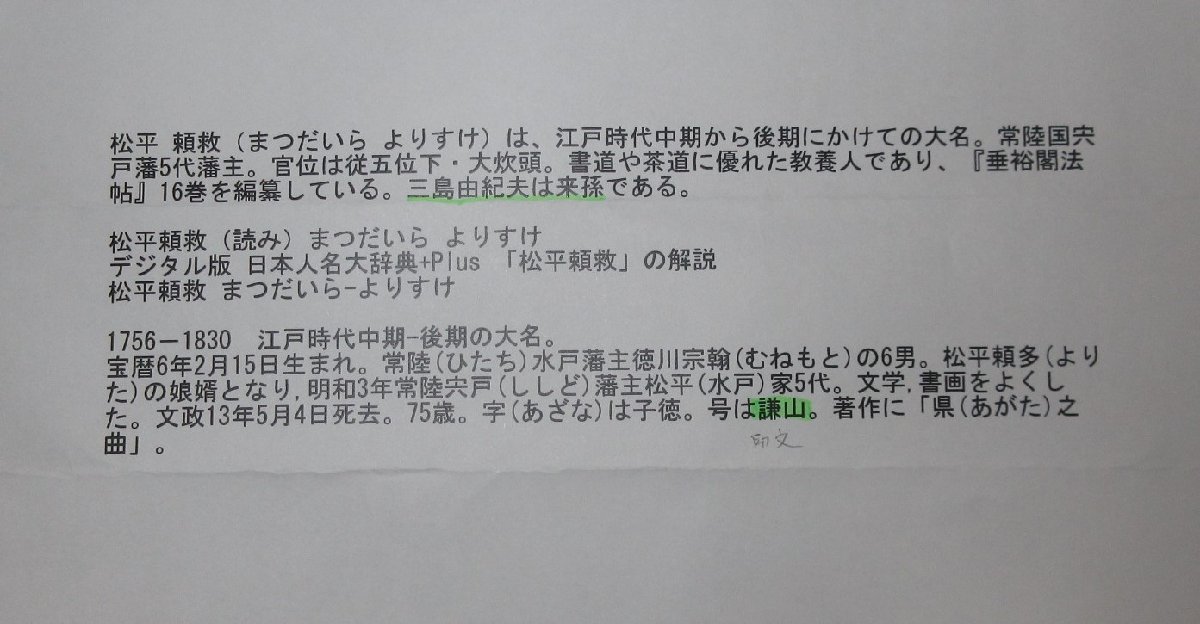 松平 頼救（まつだいら よりすけ）は、江戸時代中期から後期にかけての大名。常陸国宍
戸藩5代藩主。官位は従五位下・大炊頭。書道や茶道に優れた教養人であり、『垂裕閣法
帖』16巻を編纂している。三島由紀夫は来孫である。
松平頼救（読み）まつだいら よりすけ
デジタル版 日本人名大辞典+Plus 「松平頼救」の解説
松平頼救 まつだいら−よりすけ
1756－1830　江戸時代中期−後期の大名。
宝暦6年2月15日生まれ。常陸(ひたち)水戸藩主徳川宗翰(むねもと)の6男。松平頼多(より
た)の娘婿となり,明和3年常陸宍戸(ししど)藩主松平(水戸)家5代。文学,書画をよくし
た。文政13年5月4日死去。75歳。字(あざな)は子徳。号は謙山。著作に「県(あがた)之
曲」。
印文